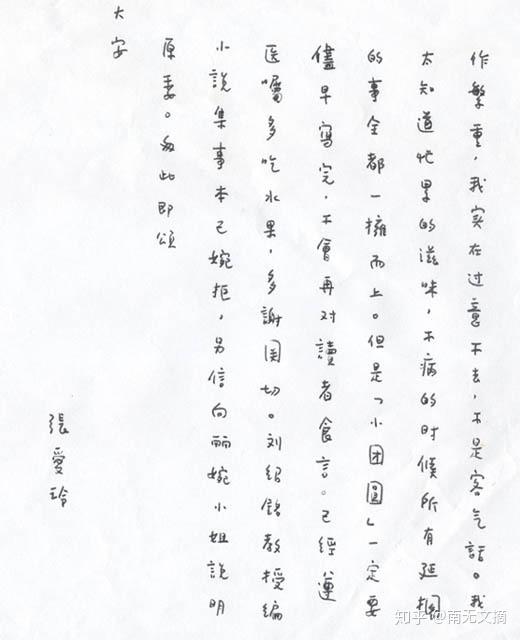 作繁重，我实在过意不去，不是客气話。我
太知道忙累的滋味，不病的时候所有延擱
的事全都一擁而上。但是「小团圓」一定要
儘早寫完，不會再对讀者食言。已經遵
医囑多吃水果，多謝関切。刘紹銘教授編
小說集事本已婉拒，另信向丽婉小姐說明
原委。匆此即頌
大安
張愛玲
知乎 @南无文摘